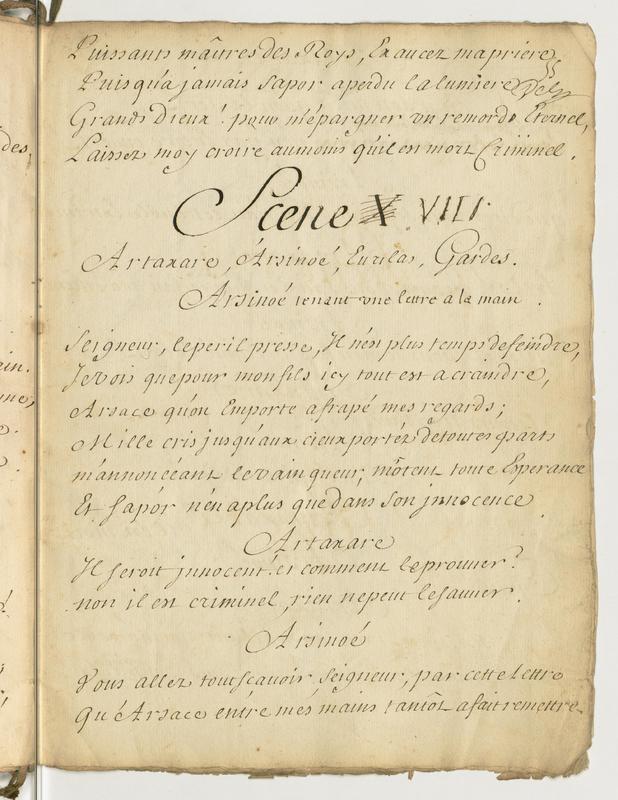 Puissants mâitres des Roys, Exaucez ma priere,
Puisqu'a jamais Sapor a perdu la lumiere
Grands Dieux! pour m'épargner un remords Eternel,
Laissez moy croire aumoins qu'il en mort Criminel.
Scene X VIII
Artaxare, Arsinoé, Eurilas, Gardes.
Arsinoé tenant une lettre a la main.
Seigneur, le peril presse, Il n'est plus temps de feindre,
Je vois que pour mon fils icy tout est a craindre,
Arsace qu'on Emporte a frapé mes regards;
Mille cris jusqu'aux cieux portéz de toutes parts
m'annoncéant le vainqueur, m'ôtent toute Esperance
Et Sapor n'en a plus que dans son jnnocence
Artaxare
Il seroit jnnocent! et comment le prouver?
non il est criminel, rien ne peut le sauver.
Arsinoé
Vous allez tout scavoir, Seigneur, par cette lettre
Qu'Arsace entre més mains tantôt a fait remettre